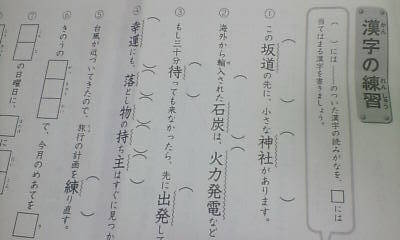 漢字の練習
かん じ れん しゅう
（ ）には――のついた漢字の読みがなを、□には
当てはまる漢字を書きましょう。
① この坂道の先に、小さな神社があります。
② 海外から輸入された石炭は、火力発電など
③ もし三十分待っても来なかったら、先に出発して
④ 幸運にも、落とし物の持ち主はすぐに見つか
⑤ 台風が近づいてきたので、旅行の計画を練り直す。
⑥ きのうの
で、今月のめあてを
⑦
の日曜日に、